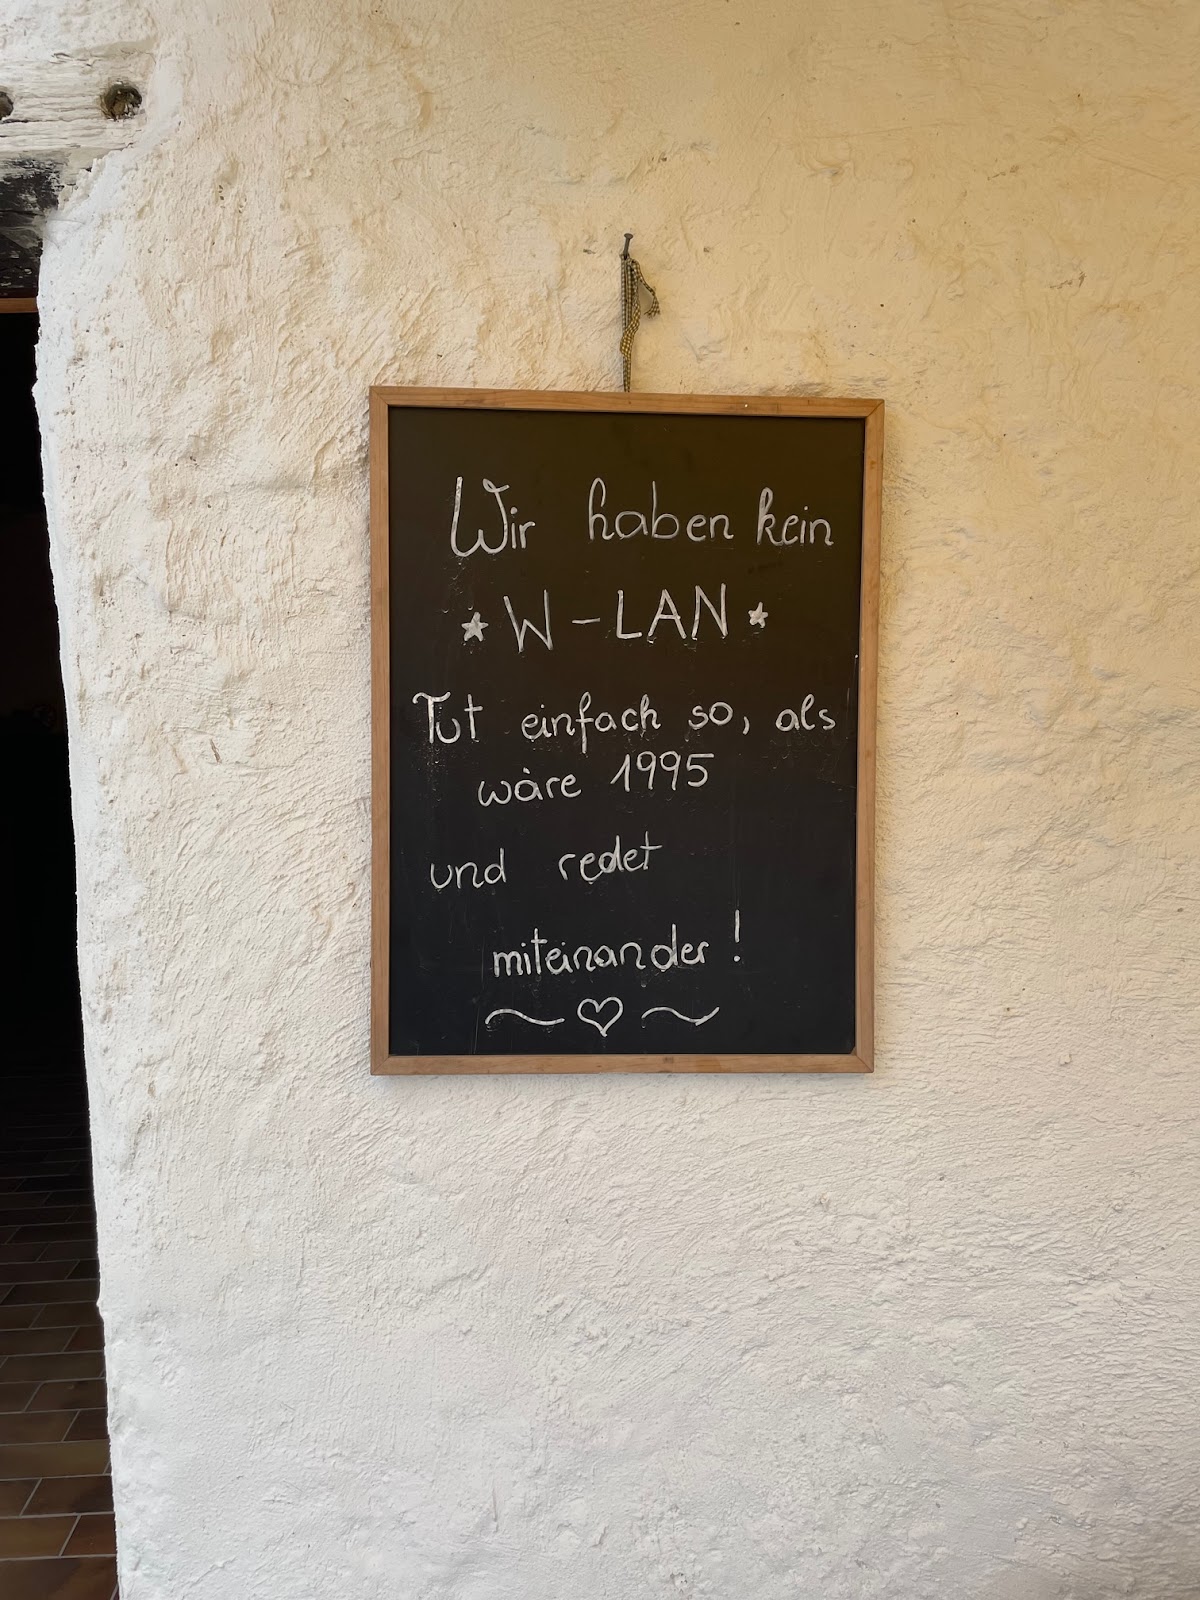 Wir haben kein
* W-LAN *
Tut einfach so, als
wäre 1995
und redet
miteinander!
~♡~